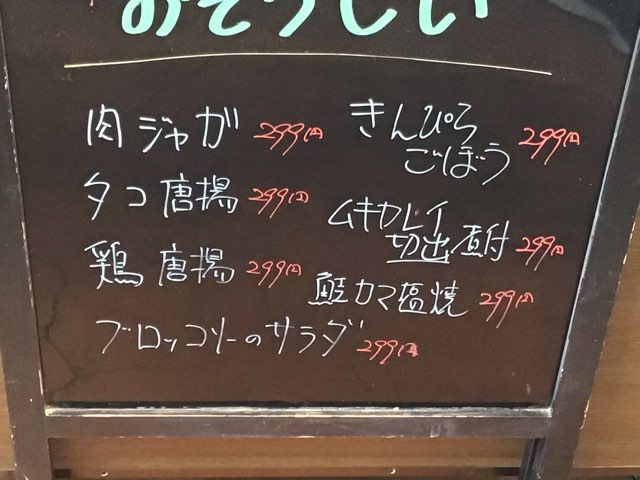 おそうじい
肉ジャガ 299円
タコ唐揚 299円
鶏唐揚 299円
ブロッコリーのサラダ 299円
きんぴら
ごぼう 299円
ムキカレイ
切出煮付 299円
鮭カマ塩焼 299円